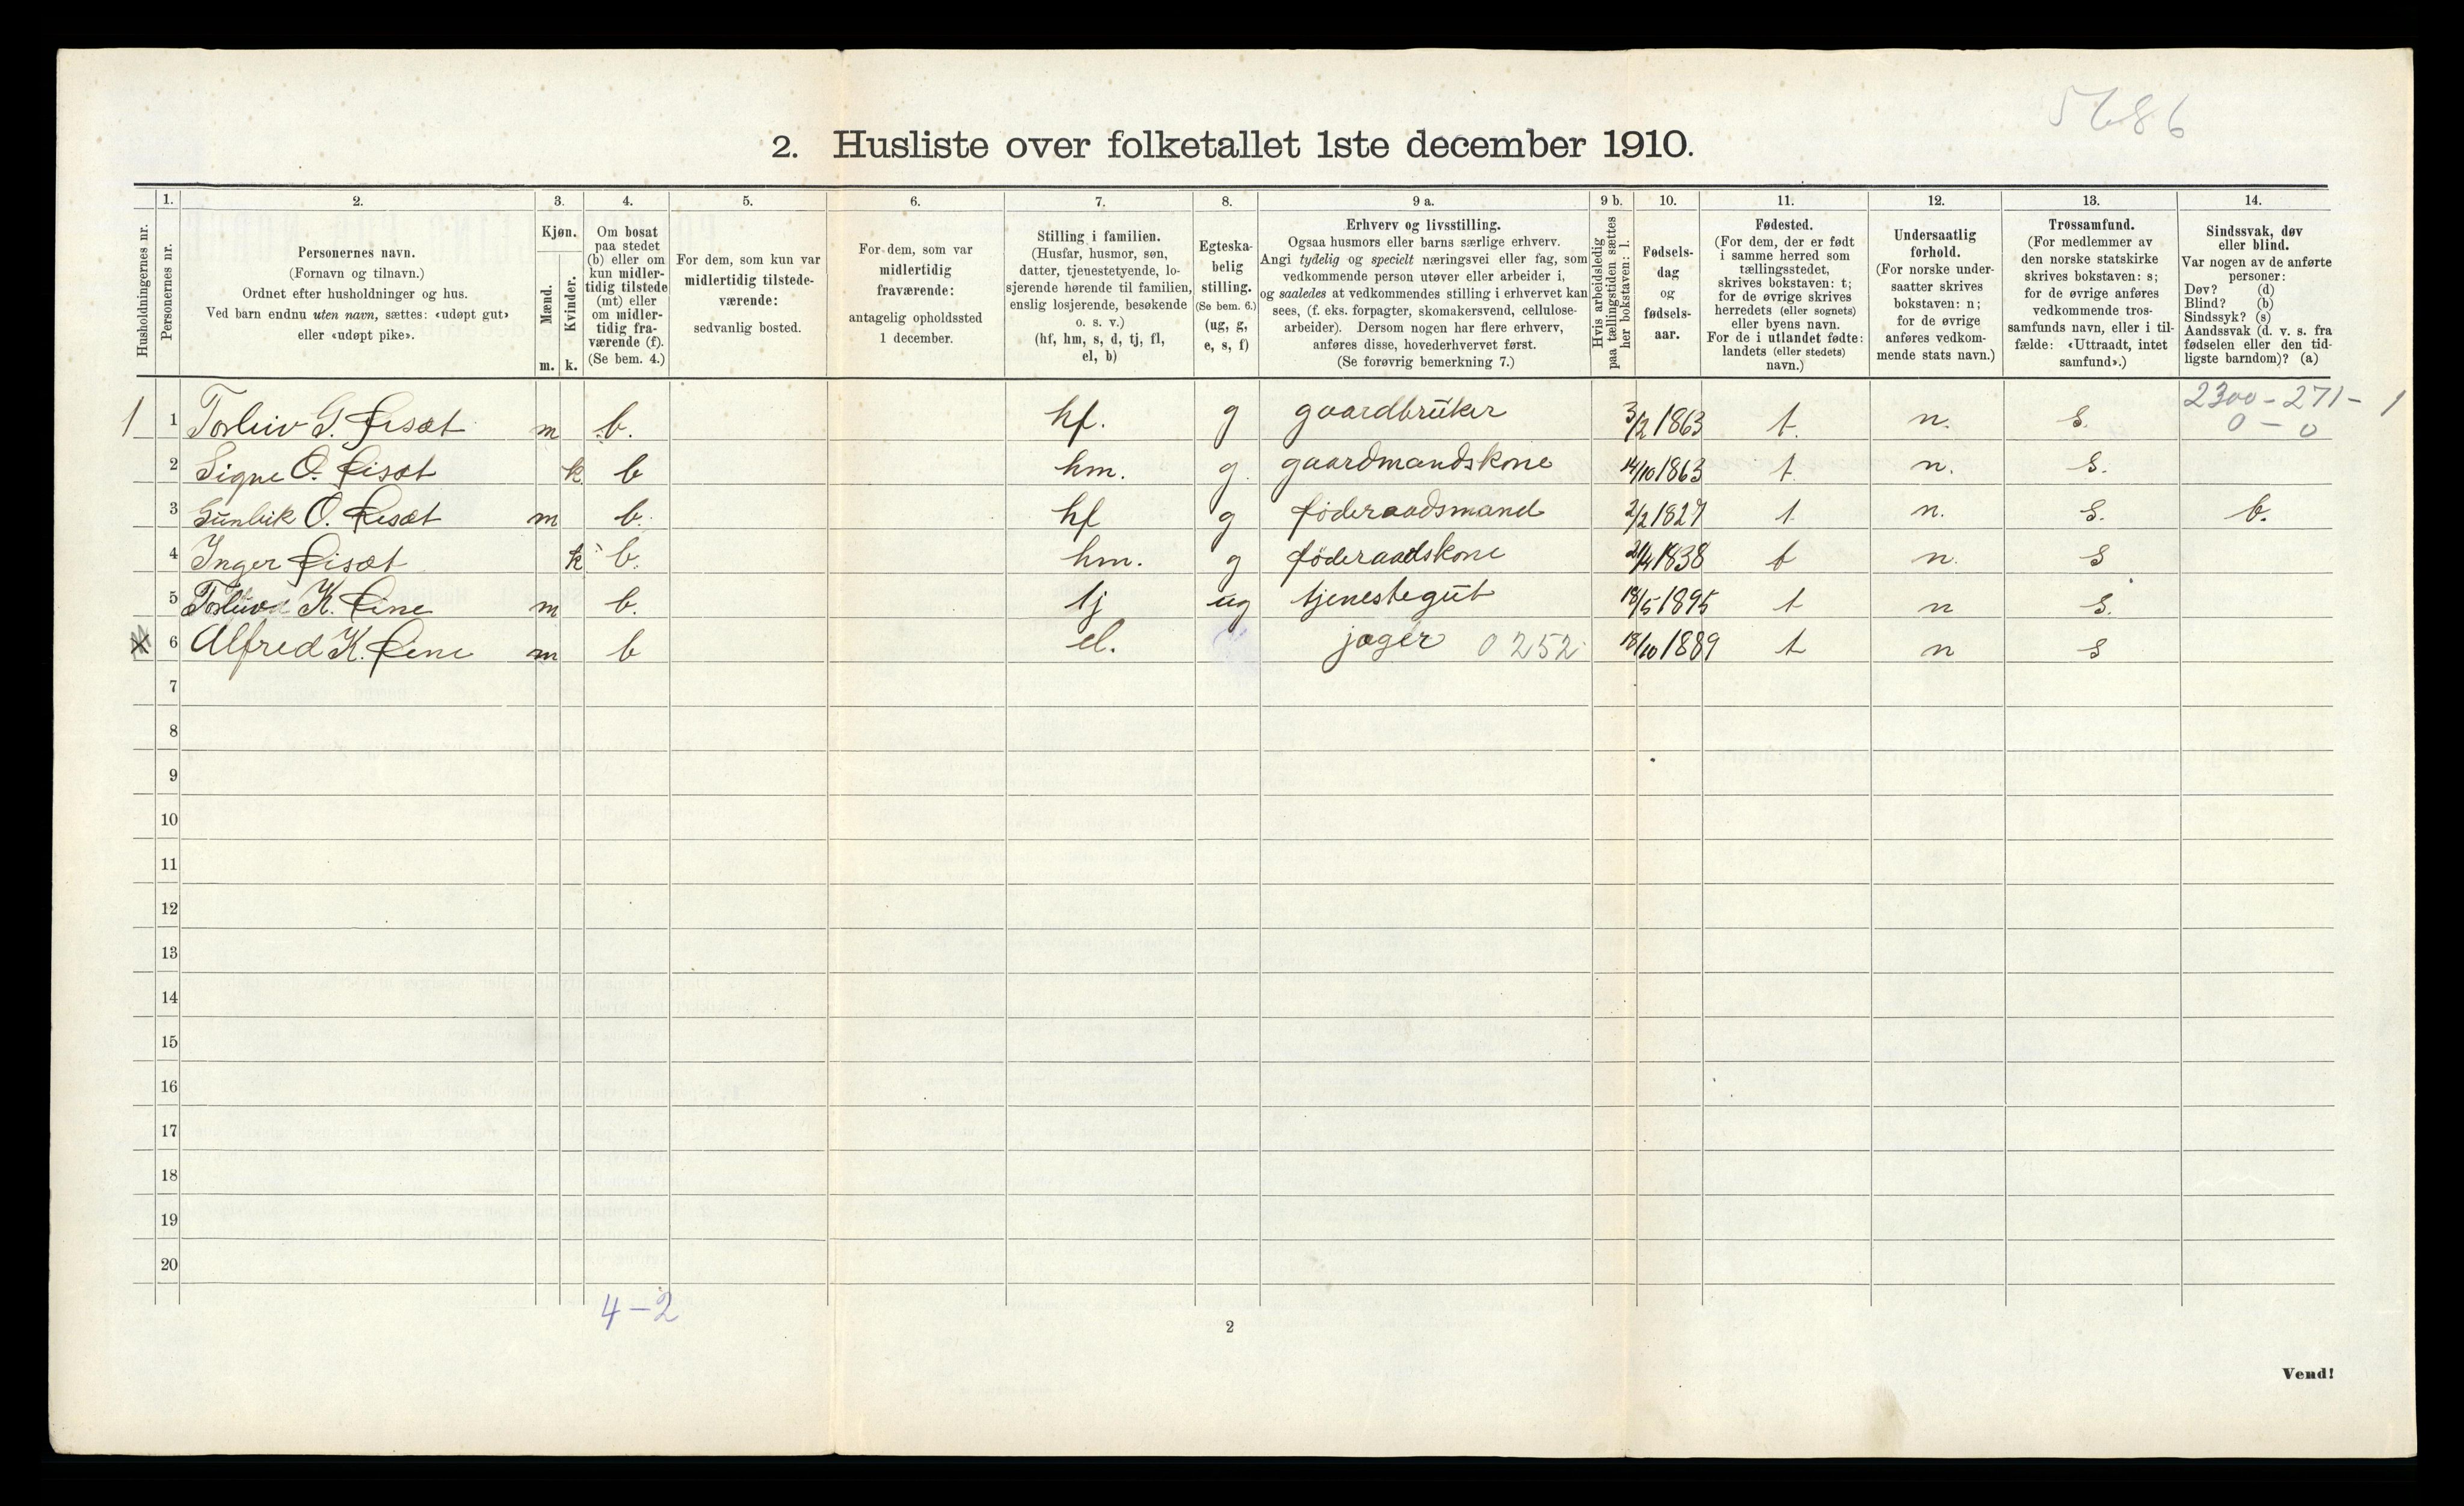 5686
2. Husliste over folketallet 1ste december 1910.
Husholdningernes nr.
1.
Personernes nr.
2.
Personernes navn.
(Fornavn og tilnavn.)
Ordnet efter husholdninger og hus.
Ved barn endnu uten navn, sættes: «udøpt gut»
eller «udøpt pike».
3.
Kjøn.
Mænd.
Kvinder.
m. k.
4.
Om bosat
paa stedet
(b) eller om
kun midler-
tidig tilstede
(mt) eller
om midler-
tidig fra-
værende (f).
(Se bem. 4.)
5.
For dem, som kun var
midlertidig tilstede-
værende:
sedvanlig bosted.
6.
For dem, som var
midlertidig
fraværende:
antagelig opholdssted
1 december.
7.
Stilling i familien.
(Husfar, husmor, søn,
datter, tjenestetyende, lo-
sjerende hørende til familien,
enslig losjerende, besøkende
o. s. v.)
(hf, hm, s, d, tj, fl,
el, b)
8.
Egteska-
belig
stilling.
(Se bem. 6.)
(ug, g,
e, s, f)
9 a.
Erhverv og livsstilling.
Ogsaa husmors eller barns særlige erhverv.
Angi tydelig og specielt næringsvei eller fag, som
vedkommende person utøver eller arbeider i,
og saaledes at vedkommendes stilling i erhvervet kan
sees, (f. eks. forpagter, skomakersvend, cellulose-
arbeider). Dersom nogen har flere erhverv,
anføres disse, hovederhvervet først.
(Se forøvrig bemerkning 7.)
9 b.
Hvis arbeidsledig
paa tællingstiden sættes
her bokstaven: l.
10.
Fødsels-
dag
og
fødsels-
aar.
11.
Fødested.
(For dem, der er født
i samme herred som
tællingsstedet,
skrives bokstaven: t;
for de øvrige skrives
herredets (eller sognets)
eller byens navn.
For de i utlandet fødte:
landets (eller stedets)
navn.)
12.
Undersaatlig
forhold.
(For norske under-
saatter skrives
bokstaven: n;
for de øvrige
anføres vedkom-
mende stats navn.)
13.
Trossamfund.
(For medlemmer av
den norske statskirke
skrives bokstaven: s;
for de øvrige anføres
vedkommende tros-
samfunds navn, eller i til-
fælde: «Uttraadt, intet
samfund».)
14.
Sindssvak, døv
eller blind.
Var nogen av de anførte
personer:
Døv? (d)
Blind? (b)
Sindssyk? (s)
Aandssvak (d. v. s. fra
fødselen eller den tid-
ligste barndom)? (a)
2300 - 271 - 1
0 - 0
1 1 Torleiv G. Risæt m b. hf. g gaardbruker 3/2 1863 t. n. s.
2 Signe O. Risæt k b hm. g. gaardmandskone 14/10 1863 t n. s.
3 Gunleik O. Risæt m b. hf g föderaadsmand 2/2 1827 t n. s. b.
4 Inger Risæt k b. hm. g föderaadskone 21/4 1838 t n. s
5 Torleiv K. Rine m b. tj ug tjenestegut 18/5 1895 t n s.
6 Alfred K. Rine m b el. jager 0252 18/10 1889 t n s
7
8
9
10
11
12
13
14
15
16
17
18
19
20
4-2
2
Vend!